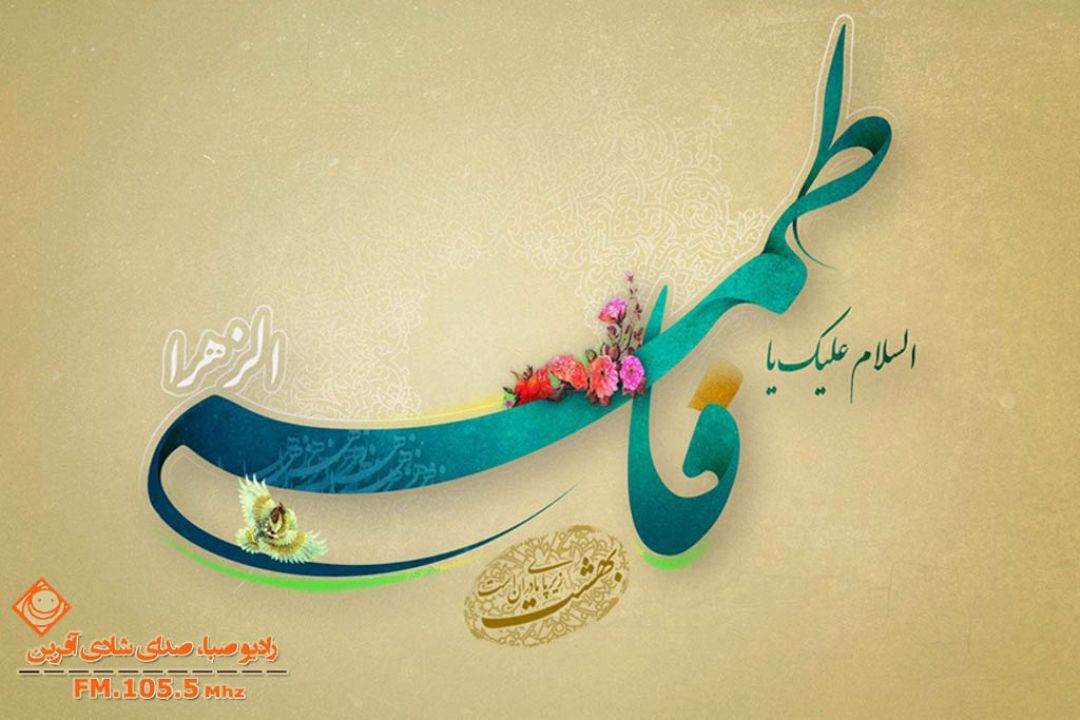 السلام علیک یا
فاطمه
الزهرا
بهشت
زیر پای مادران است
رادیو صبا، صدای شادی آفرین
FM.105.5 Mhz